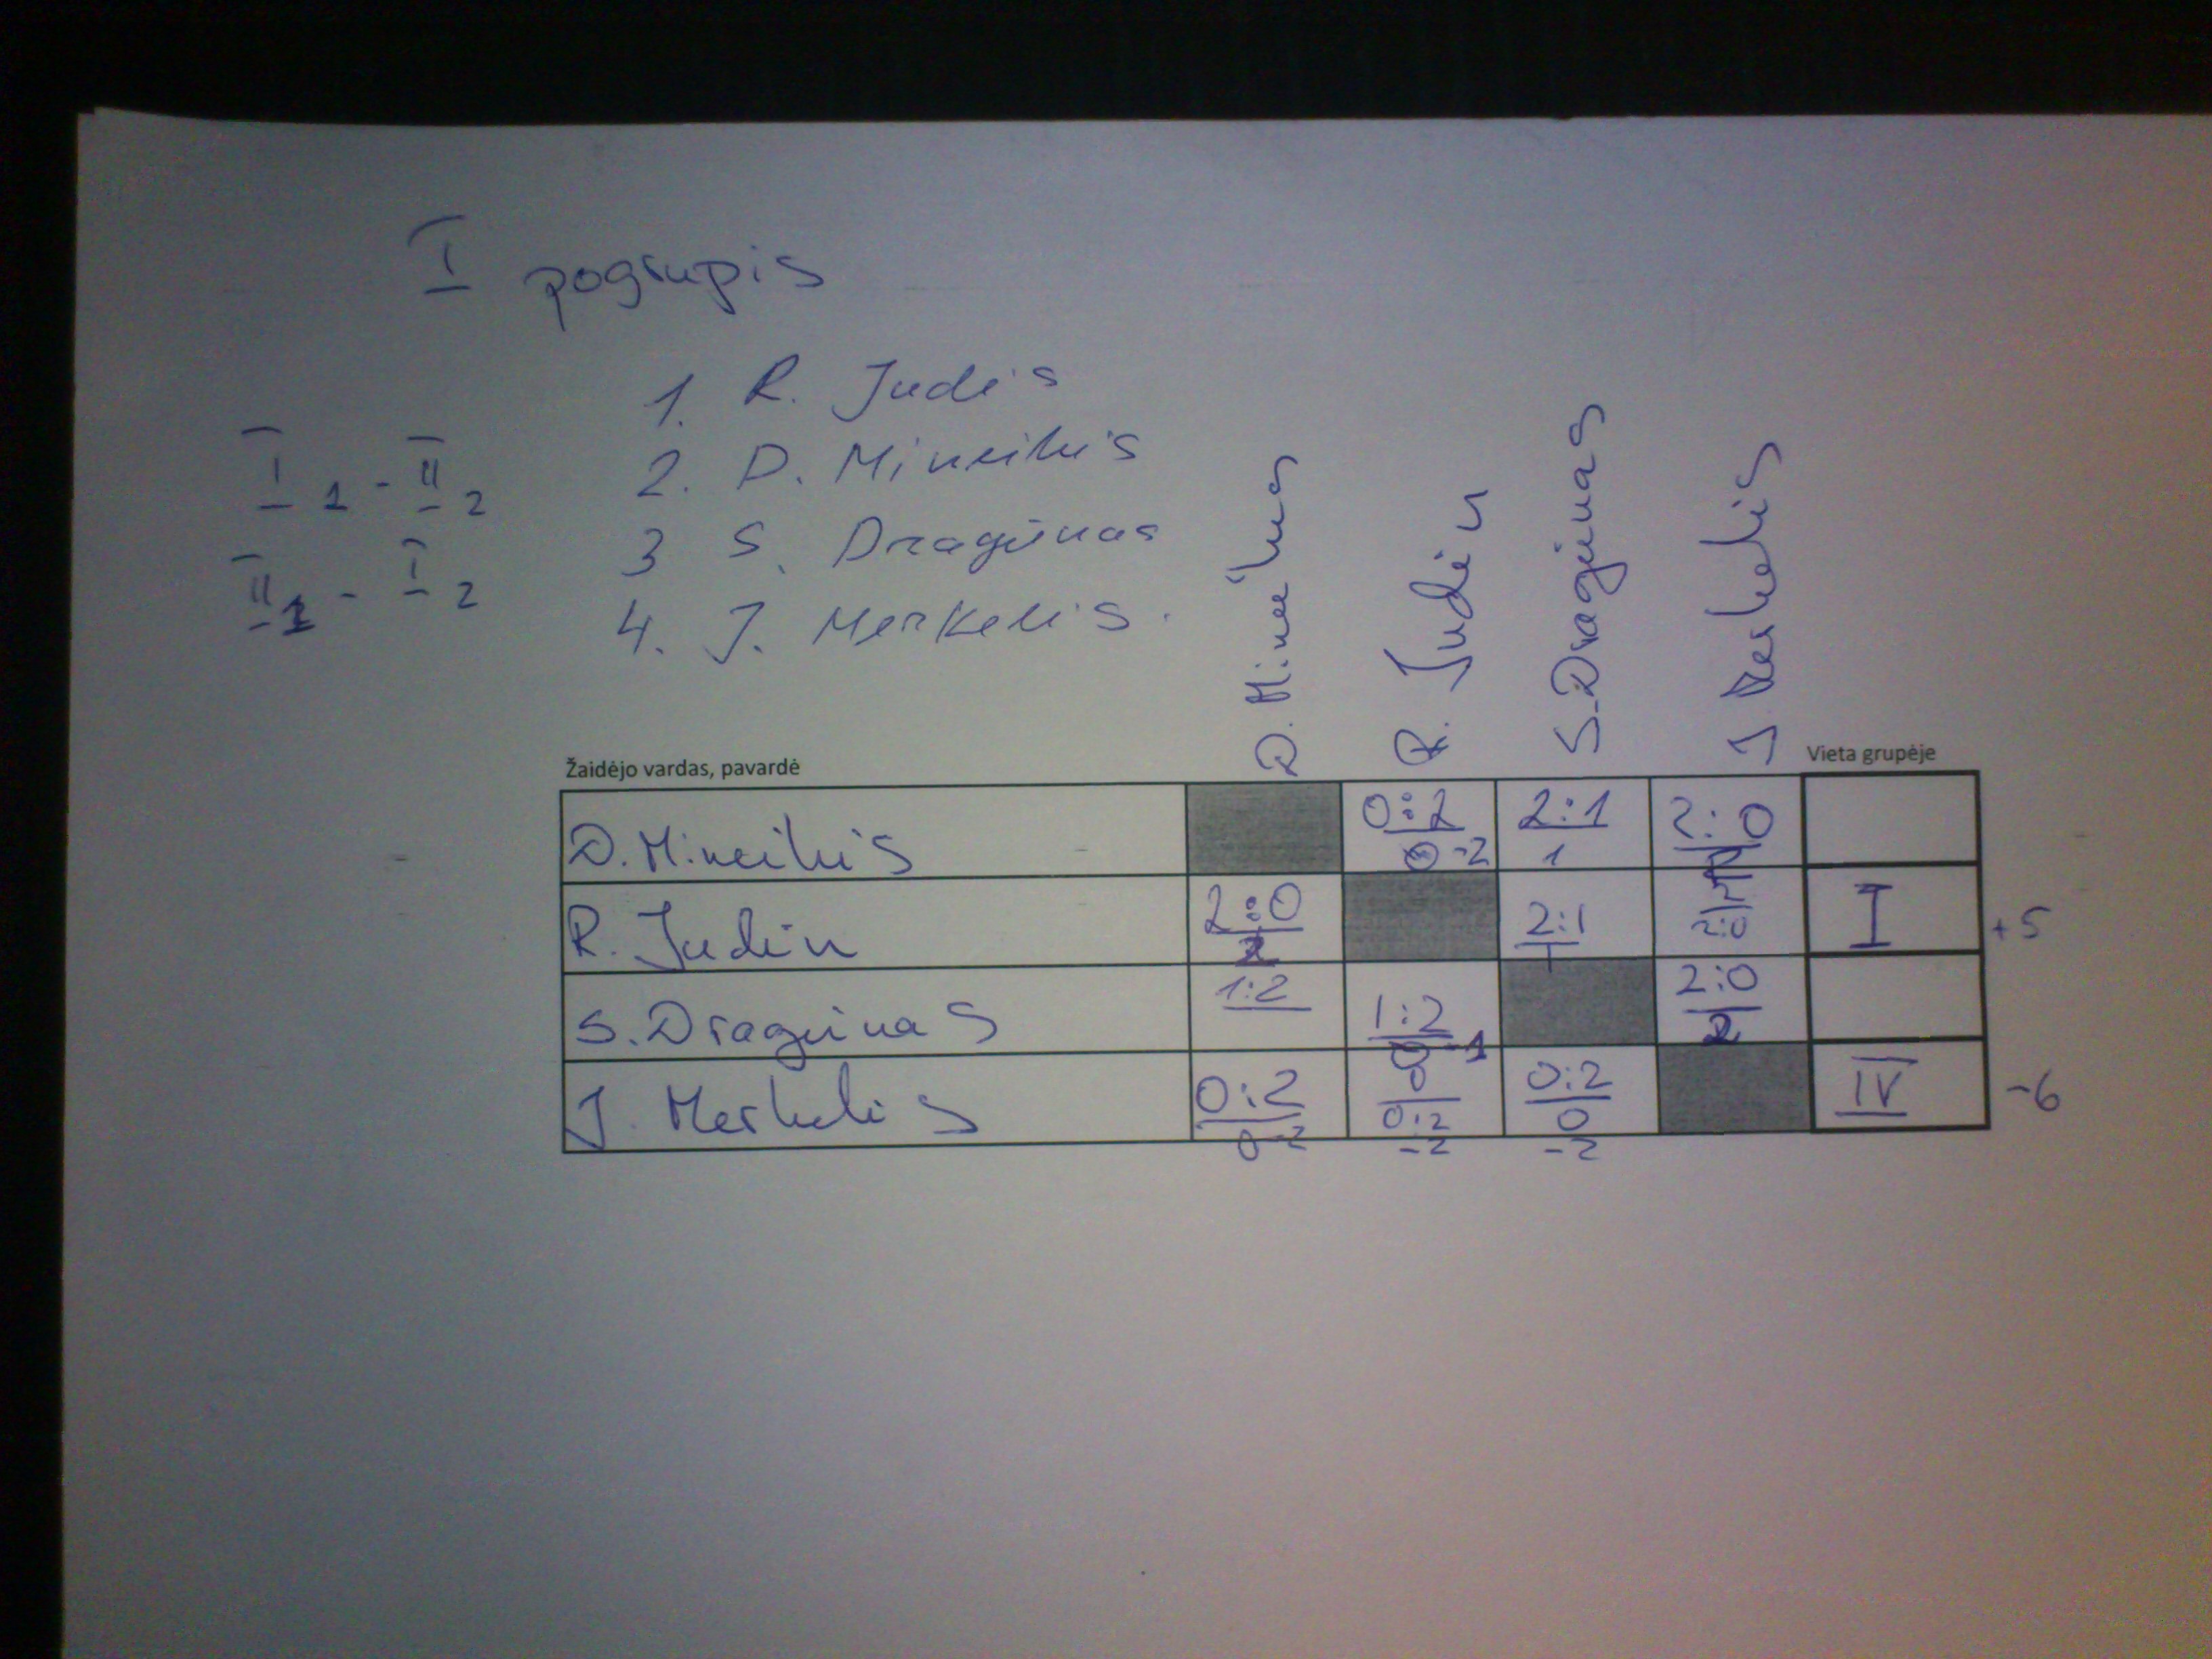 I pogrupis
1. R. Judis
2. D. Mineikis
3 S. Dragūnas
4. J. Merkelis.
I 1 - II 2
II 1 - I 2
R. Judin
S. Dragūnas
Žaidėjo vardas, pavardė Vieta grupėje
D. Mineikis 0:2 0 -2 2:1 1 2:0
R. Judin 2:0 2 2:1 1 2:0 I +5
S. Dragūnas 1:2 1:2 -1 2:0 2
J. Merkelis 0:2 0 -2 0 0:2 -2 0:2 0 -2 IV -6